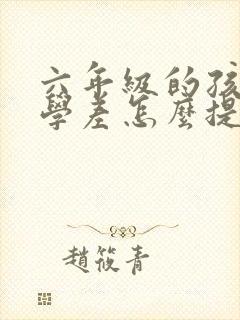 六年級的孩
學差怎麼提
趙筱青